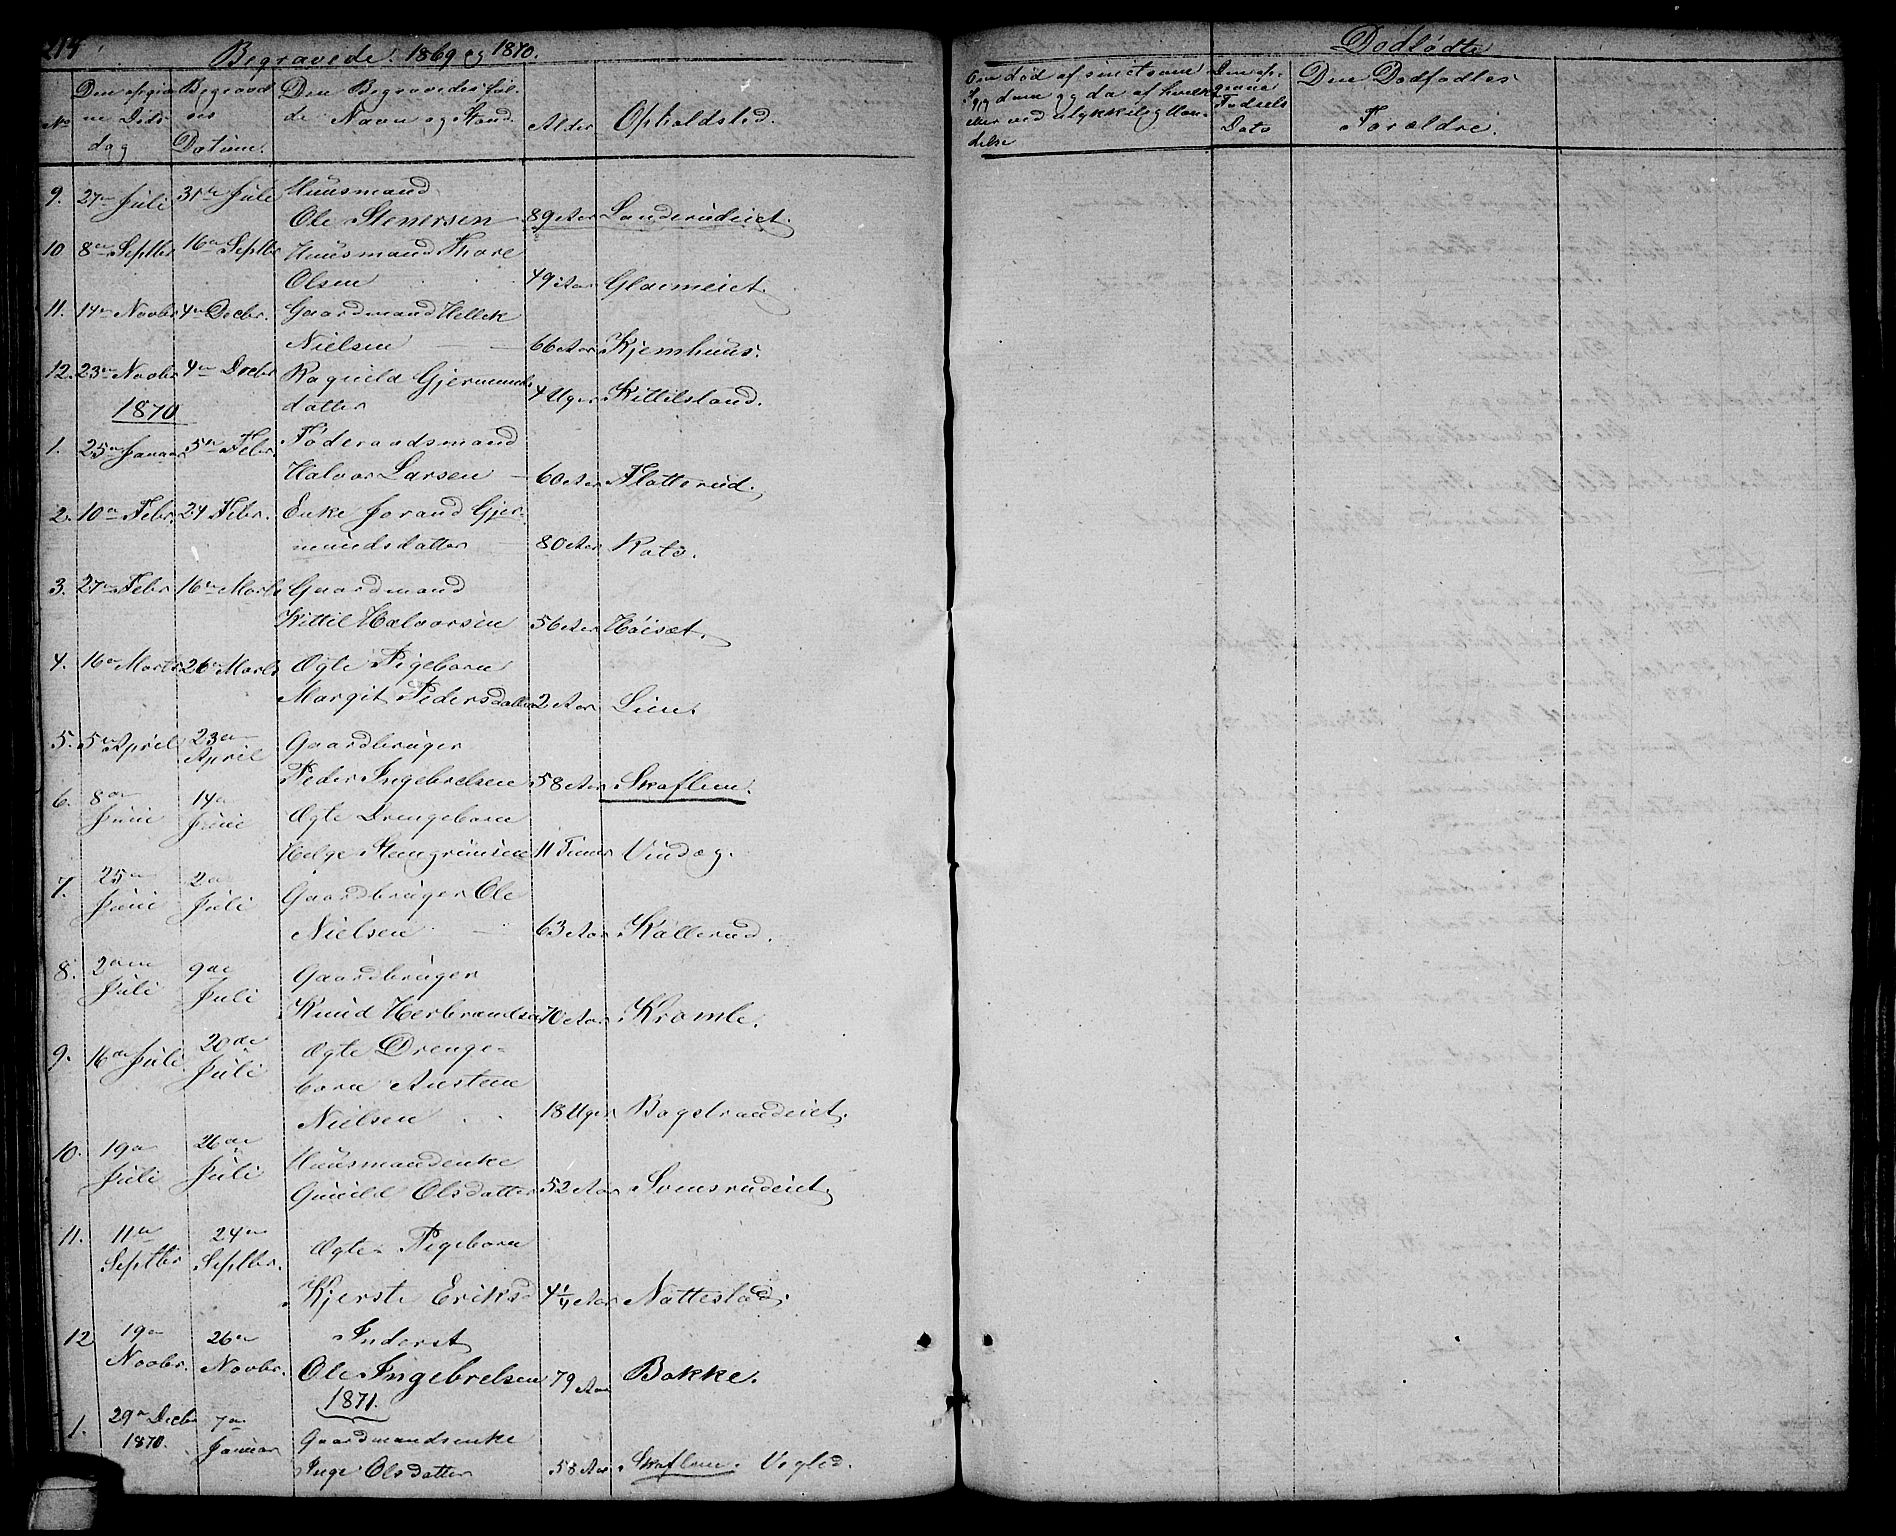 214
Begravede. 1869 og 1870.
No
Den opgivne Dødsdag
Begravelses Datum.
Den Begravedes fulde Navn og Stand.
Alder
Opholdsted.
9. 27de Juli 31te Juli Huusmand
Ole Stenersen 89 Aar Landerudeiet.
10 8de Septbr 16de Septbr Huusmand Thore
Olsen 49 Aar Gladmeiet.
11. 14de Novbr 4de Decbr. Gaardmand Hellek
Nielsen 66 Aar Kjemhuus.
12. 23de Novbr 4de Decbr Raguild Gjermunds
datter 4 Uger Kittilsland.
1870
1. 25de Januar 5te Febr. Föderaadsmand
Halvor Larsen 60 Aar Flatterud.
2. 10de Febr. 24 Febr. Enke Jorand Gjer-
mundsdatter 80 Aar Kato.
3. 27de Febr 16de Marts Gaardmand
Kittil Halvorsen 56 Aar Höisæt.
4. 16de Marts 26de Marts Ægte Pigebarn
Margit Pedersdatter 2 Aar Lien.
5. 5te April 23de April Gaardbruger
Peder Ingebretsen 58 Aar Skaflem.
6. 8de Juni 14de Juni Ægte Drengebarn
Helge Stengrimsen 11 Timer Vindeg.
7. 25de Juni 2de Juli Gaardbruger Ole
Nielsen 63 Aar Kallerud.
8. 2den Juli 9de Juli Gaardbruger
Knud Herbrandsen 70 Aar Kromle.
9. 16de Juli 20de Juli Ægte Drenge-
barn Austen
Nielsen 18 Uger Bagstrandeiet.
10. 19de Juli 26de Juli Huusmandenke
Gunild Olsdatter 52 Aar Svensrudeiet.
11. 11te Septbr 24de Septbr. Ægte Pigebarn
Kjersti Eriksd 4 1/4 Aar Nattestad.
12 19de Novbr. 26de Novbr. Inderst
Ole Ingebretsen 79 Aar Bakke.
1871.
1. 29de Decbr 1870. 7de Januar Gaardmandsenke
Inge Olsdatter 58 Aar. Skaflem. Vegled.
Dodfødte
Om död af smetsom
Sygdom og da af hvilken
eller ved ulykkelig Hæn-
delse
Den opgivne Fødsels Dato
Den Dodfødtes
Forældre.